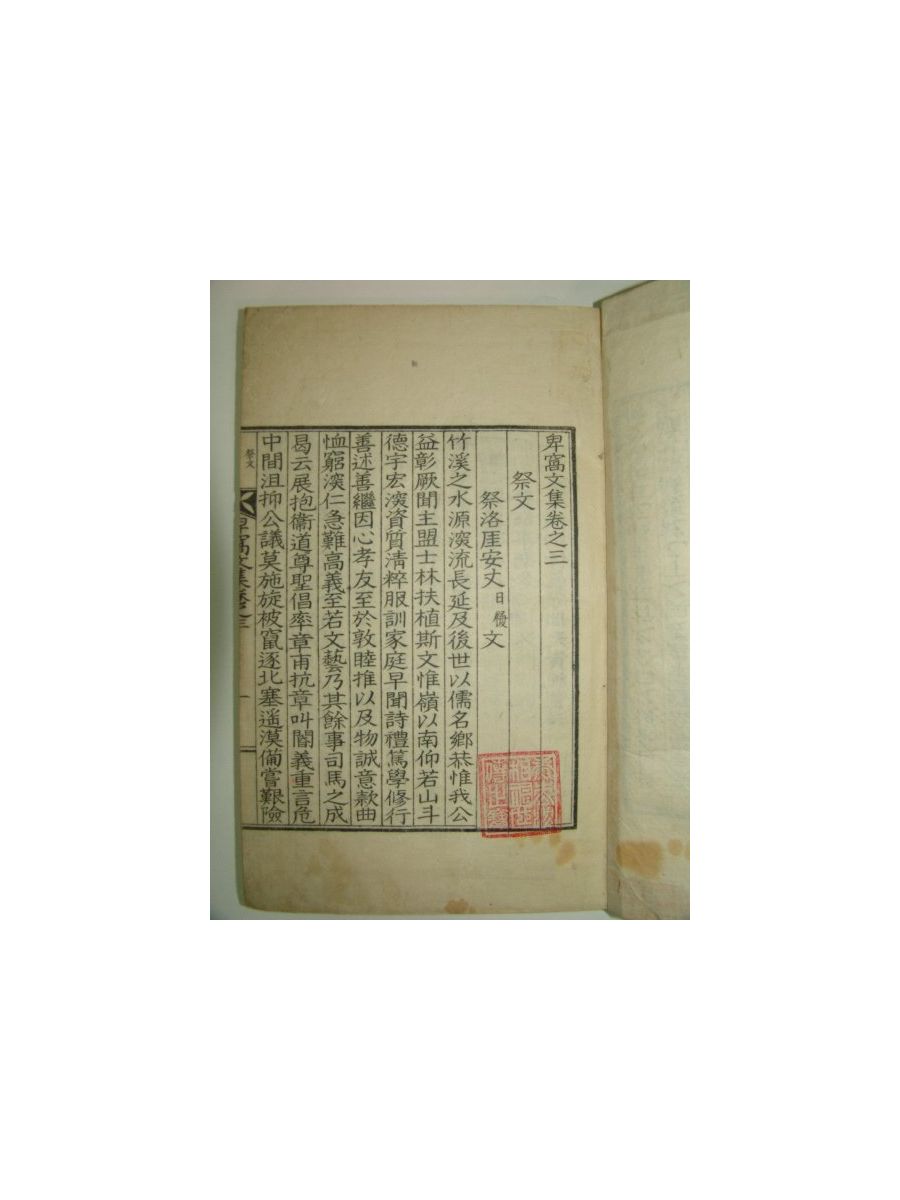 卑窩文集卷之三
祭文
祭洛厓安丈日履文
竹溪之水源深流長延及後世以儒名鄉恭惟我公
益彰厥聞主盟士林扶植斯文惟嶺以南仰若山斗
德宇宏深資質清粹服訓家庭早聞詩禮篤學修行
善述善繼因心孝友至於敦睦推以及物誠意款曲
恤窮深仁急難高義至若文藝乃其餘事司馬之成
曷云展抱衛道尊聖倡率章甫抗章叫閽義重言危
中間沮抑公議莫施旋被竄逐北塞遥漠備嘗艱險
祭文
卑窩文集卷之三
一